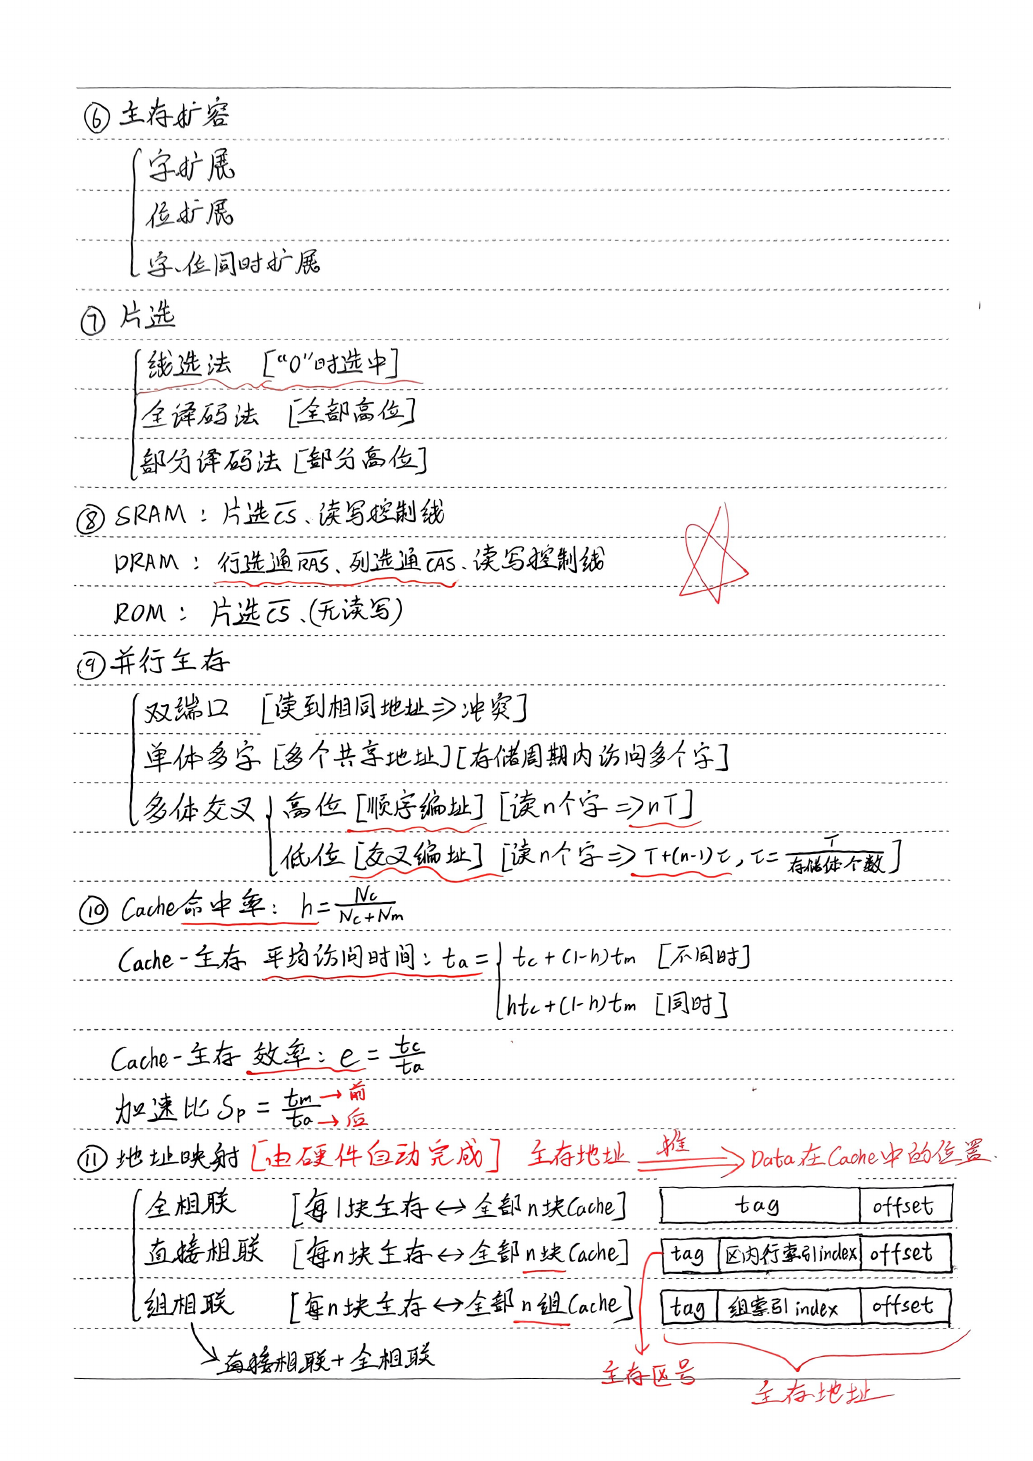 ⑥ 主存扩容
字扩展
位扩展
字、位同时扩展
⑦ 片选
线选法 ["0"时选中]
全译码法 [全部高位]
部分译码法 [部分高位]
⑧ SRAM: 片选C̅S̅、读写控制线
DRAM: 行选通R̅A̅S̅、列选通C̅A̅S̅、读写控制线
ROM: 片选C̅S̅、(无读写)
⑨ 并行主存
双端口 [读到相同地址⇒冲突]
单体多字 [多个共享地址] [存储周期内访问多个字]
多体交叉 高位 [顺序编址] [读n个字⇒nT]
低位 [交叉编址] [读n个字⇒T+(n-1)τ, τ=T/存储体个数]
⑩ Cache命中率: h=Nc/(Nc+Nm)
Cache-主存 平均访问时间: ta= tc+(1-h)tm [不同时]
htc+(1-h)tm [同时]
Cache-主存 效率: e=tc/ta
加速比 Sp=tm/ta →前 →后
⑪ 地址映射 [由硬件自动完成] 主存地址 推⇒ Data在Cache中的位置.
全相联 [每1块主存↔全部n块Cache] tag offset
直接相联 [每n块主存↔全部n块Cache] tag 区内行索引index offset
组相联 [每n块主存↔全部n组Cache] tag 组索引index offset
直接相联+全相联
主存区号
主存地址